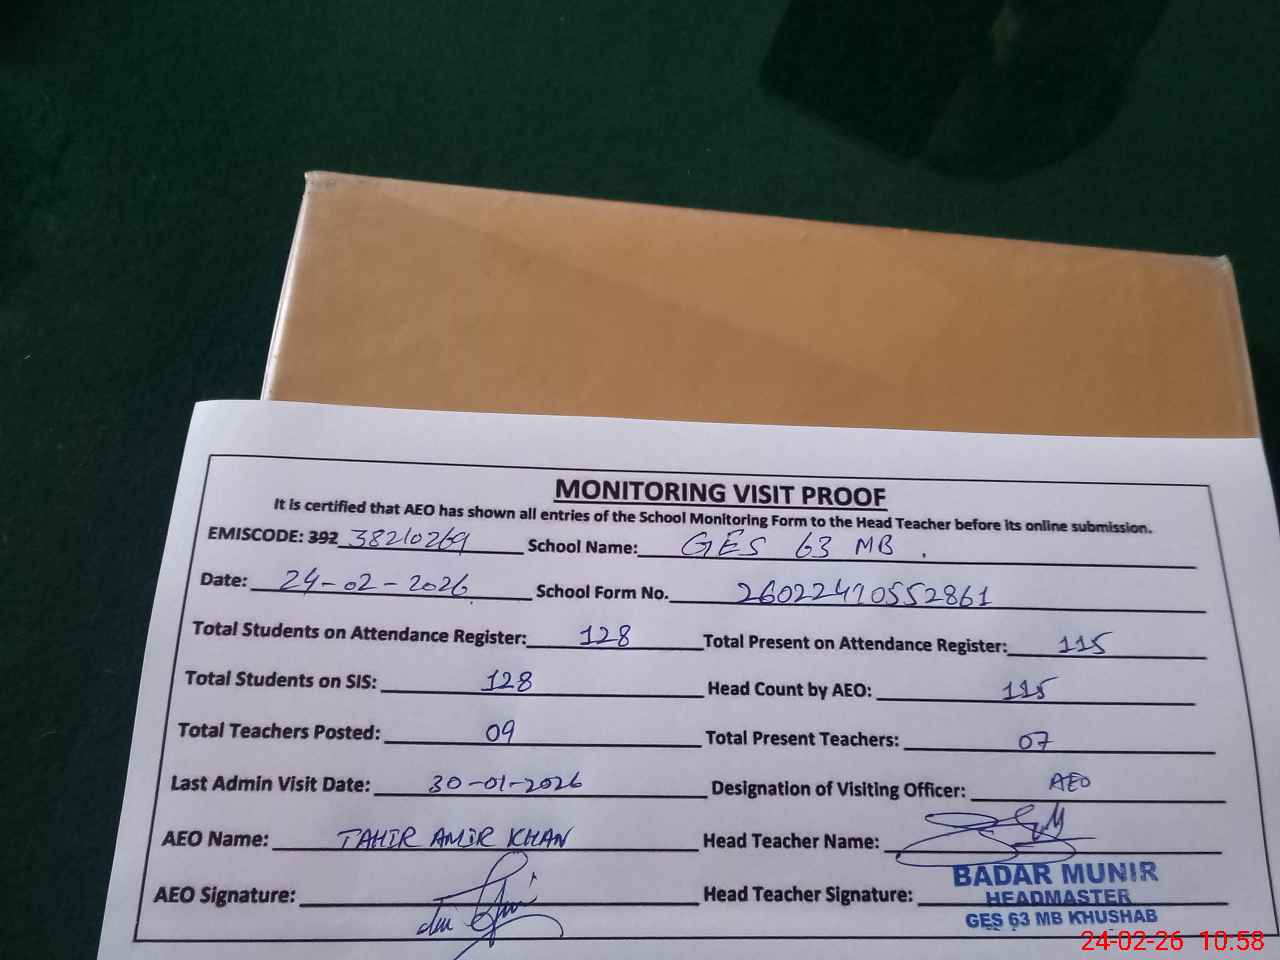 MONITORING VISIT PROOF
It is certified that AEO has shown all entries of the School Monitoring Form to the Head Teacher before its online submission.
EMISCODE: 392 38210269 School Name: GES 63 MB .
Date: 24-02-2026 School Form No. 26022410552861
Total Students on Attendance Register: 128 Total Present on Attendance Register: 115
Total Students on SIS: 128 Head Count by AEO: 115
Total Teachers Posted: 09 Total Present Teachers: 07
Last Admin Visit Date: 30-01-2026 Designation of Visiting Officer: AEO
AEO Name: TAHIR AMIR KHAN Head Teacher Name:
AEO Signature: Head Teacher Signature:
BADAR MUNIR
HEADMASTER
GES 63 MB KHUSHAB
24-02-26 10.58